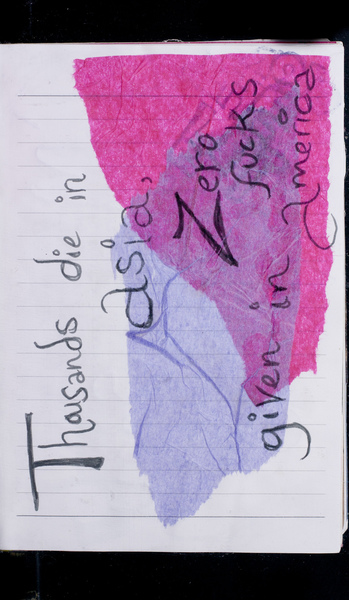 Thousands die in
asia,
Zero
fucks
given in America